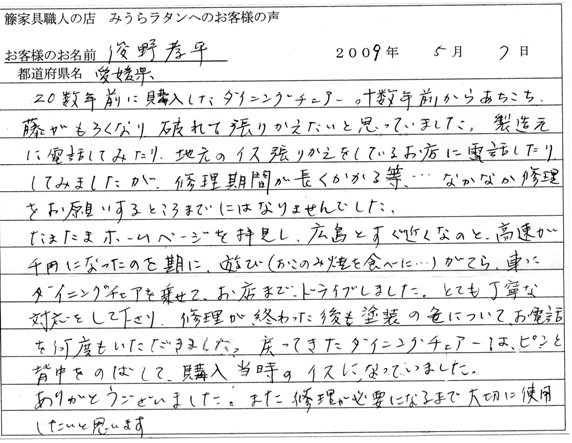 籐家具職人の店 みうらラタンへのお客様の声
お客様のお名前 俊野孝平 2009年 5月 7日
都道府県名 愛媛県
20数年前に購入したダイニングチェアー。十数年前からあちこち、
藤がもろくなり破れて張りかえたいと思っていました。製造元
に電話してみたり、地元のイス張りかえをしているお店に電話したり
してみましたが、修理期間が長くかかる等、… なかなか修理
をお願いするところまでにはなりませんでした。
たまたまホームページを拝見し、広島とすぐ近くなのと、高速が
千円になったのを期に、遊び(おこのみ焼を食べに…)がてら、車に
ダイニングチェアを乗せて、お店までドライブしました。とても丁寧な
対応をして下さり、修理が終わった後も塗装の色について、お電話
を何度もいただきました。戻ってきたダイニングチェアーは、ピンと
背中をのばして、購入当時のイスになっていました。
ありがとうございました。また修理が必要になるまで大切に使用
したいと思います